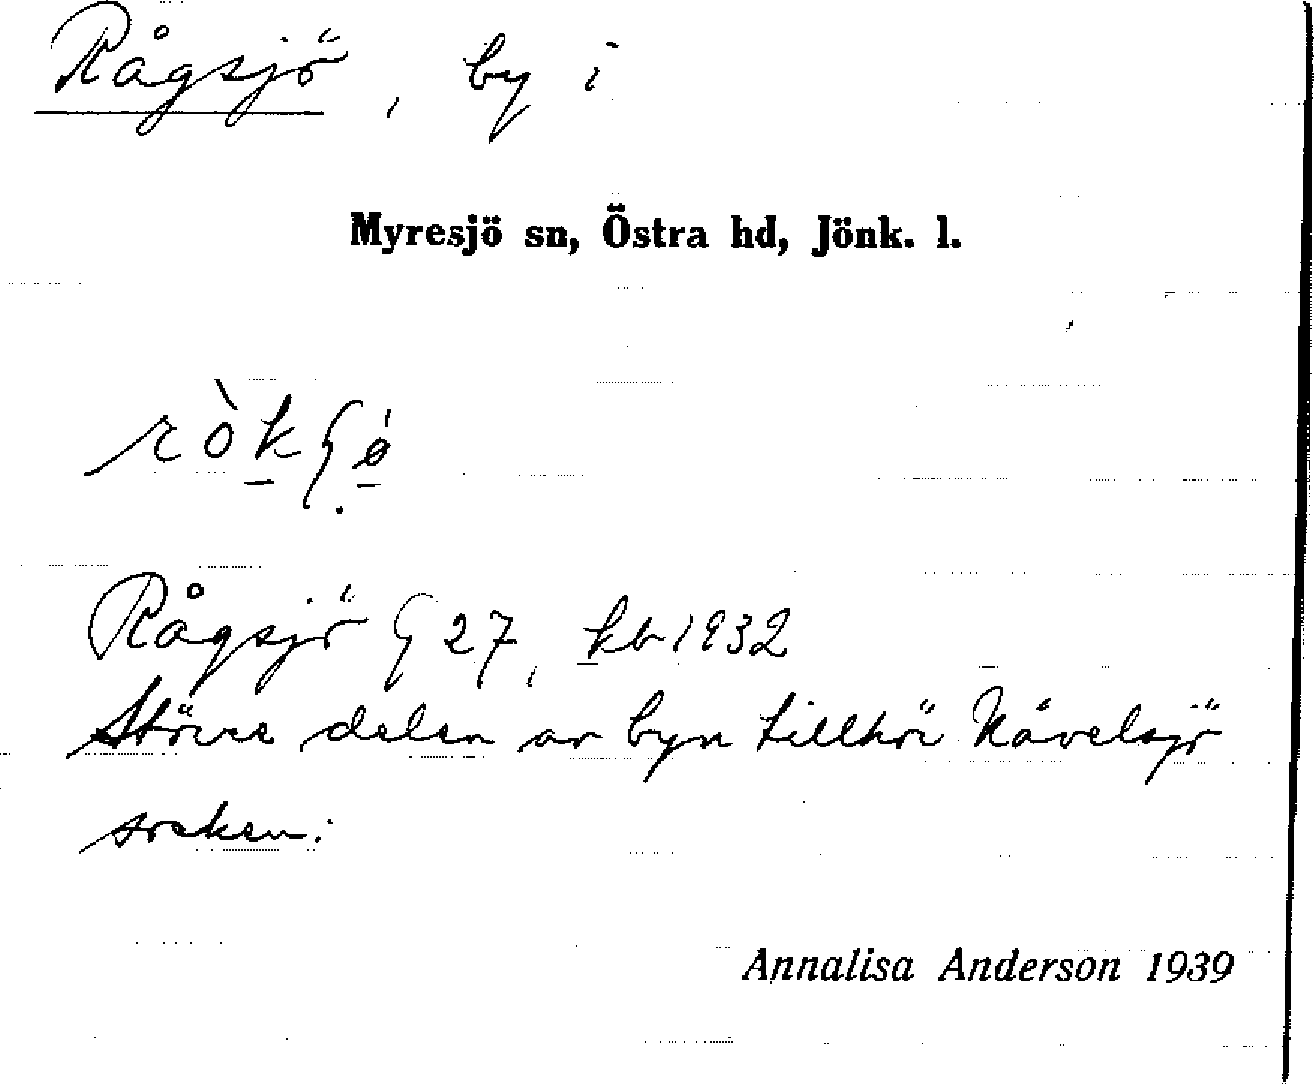 Rågsjö, by i
Myresjö sn, Östra hd, Jönk. l.
Rågsjö G 27, kb 1932
Större delen av byn tillhör Nävelsjö
socken.
Annalisa Anderson 1939